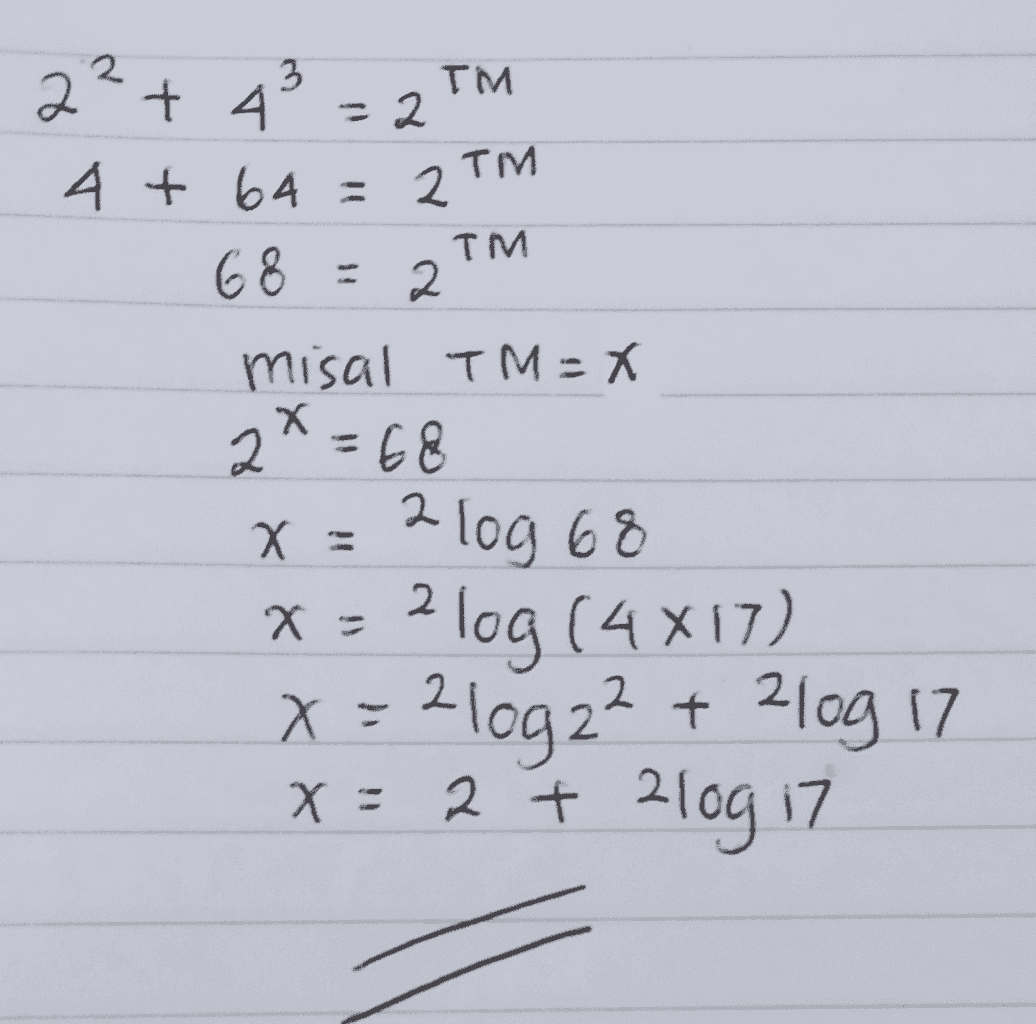 2² + 4³ = 2ᵀᴹ
4 + 64 = 2ᵀᴹ
68 = 2ᵀᴹ
misal TM = x
2ˣ = 68
x = ²log 68
x = ²log (4 x 17)
x = ²log 2² + ²log 17
x = 2 + ²log 17